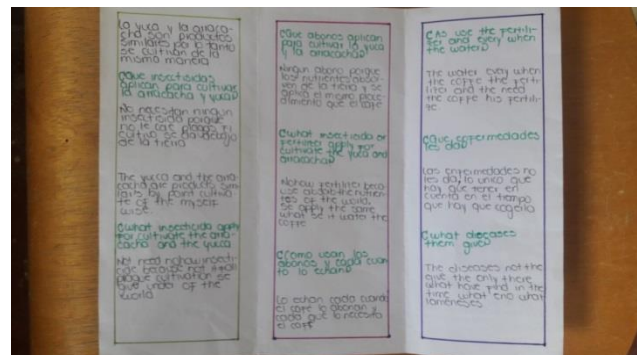 La yuca y la arraca-
cha son productos
similares por lo tanto
se cultivan de la
misma manera
¿Que insecticidas
aplican para cultivar
la arracacha y yuca?
No necesitan ningun
insecticida porque
no le cae plagas el
cultivo se da debajo
de la tierra
The yucca and the arra-
cacha are products simi-
lars by point cultiva-
te of the myself
wise
¿what insecticida apply
for cultivate the arra-
cacha and the yucca
Not need nohow insecti-
cide because not
plague cultivation se
give under of the
world
¿Que abonos aplican
para cultivar la yuca
y la arracacha?
Ningun abono porque
los nutrientes absor-
ven de la tierra y se
aplica el mismo proce-
dimiento que el cafe
¿what insecticida or
fertilizer apply for
cultivate the yuca and
arracacha?
Nohow fertilizer beca-
use absorb the nutrien-
tes of the world,
se apply the same
what se it water the
coffe
¿Como usan los
abonos y cada cuan-
to lo echan?
Lo echan cada cuando
el cafe lo abonan y
cada que lo necesita
el cafe
¿As use the fertili-
zer and every when
the water?
The water every when
the coffe the ferti-
lizer and the need
the coffe his fertili-
zer
¿Que enfermedades
les da?
Las enfermedades no
les da, lo unico que
hay que tener en
cuenta en el tiempo
que hay que cogerla
¿what diseases
them give?
The diseases not the
give the only there
what have find in the
time what end what